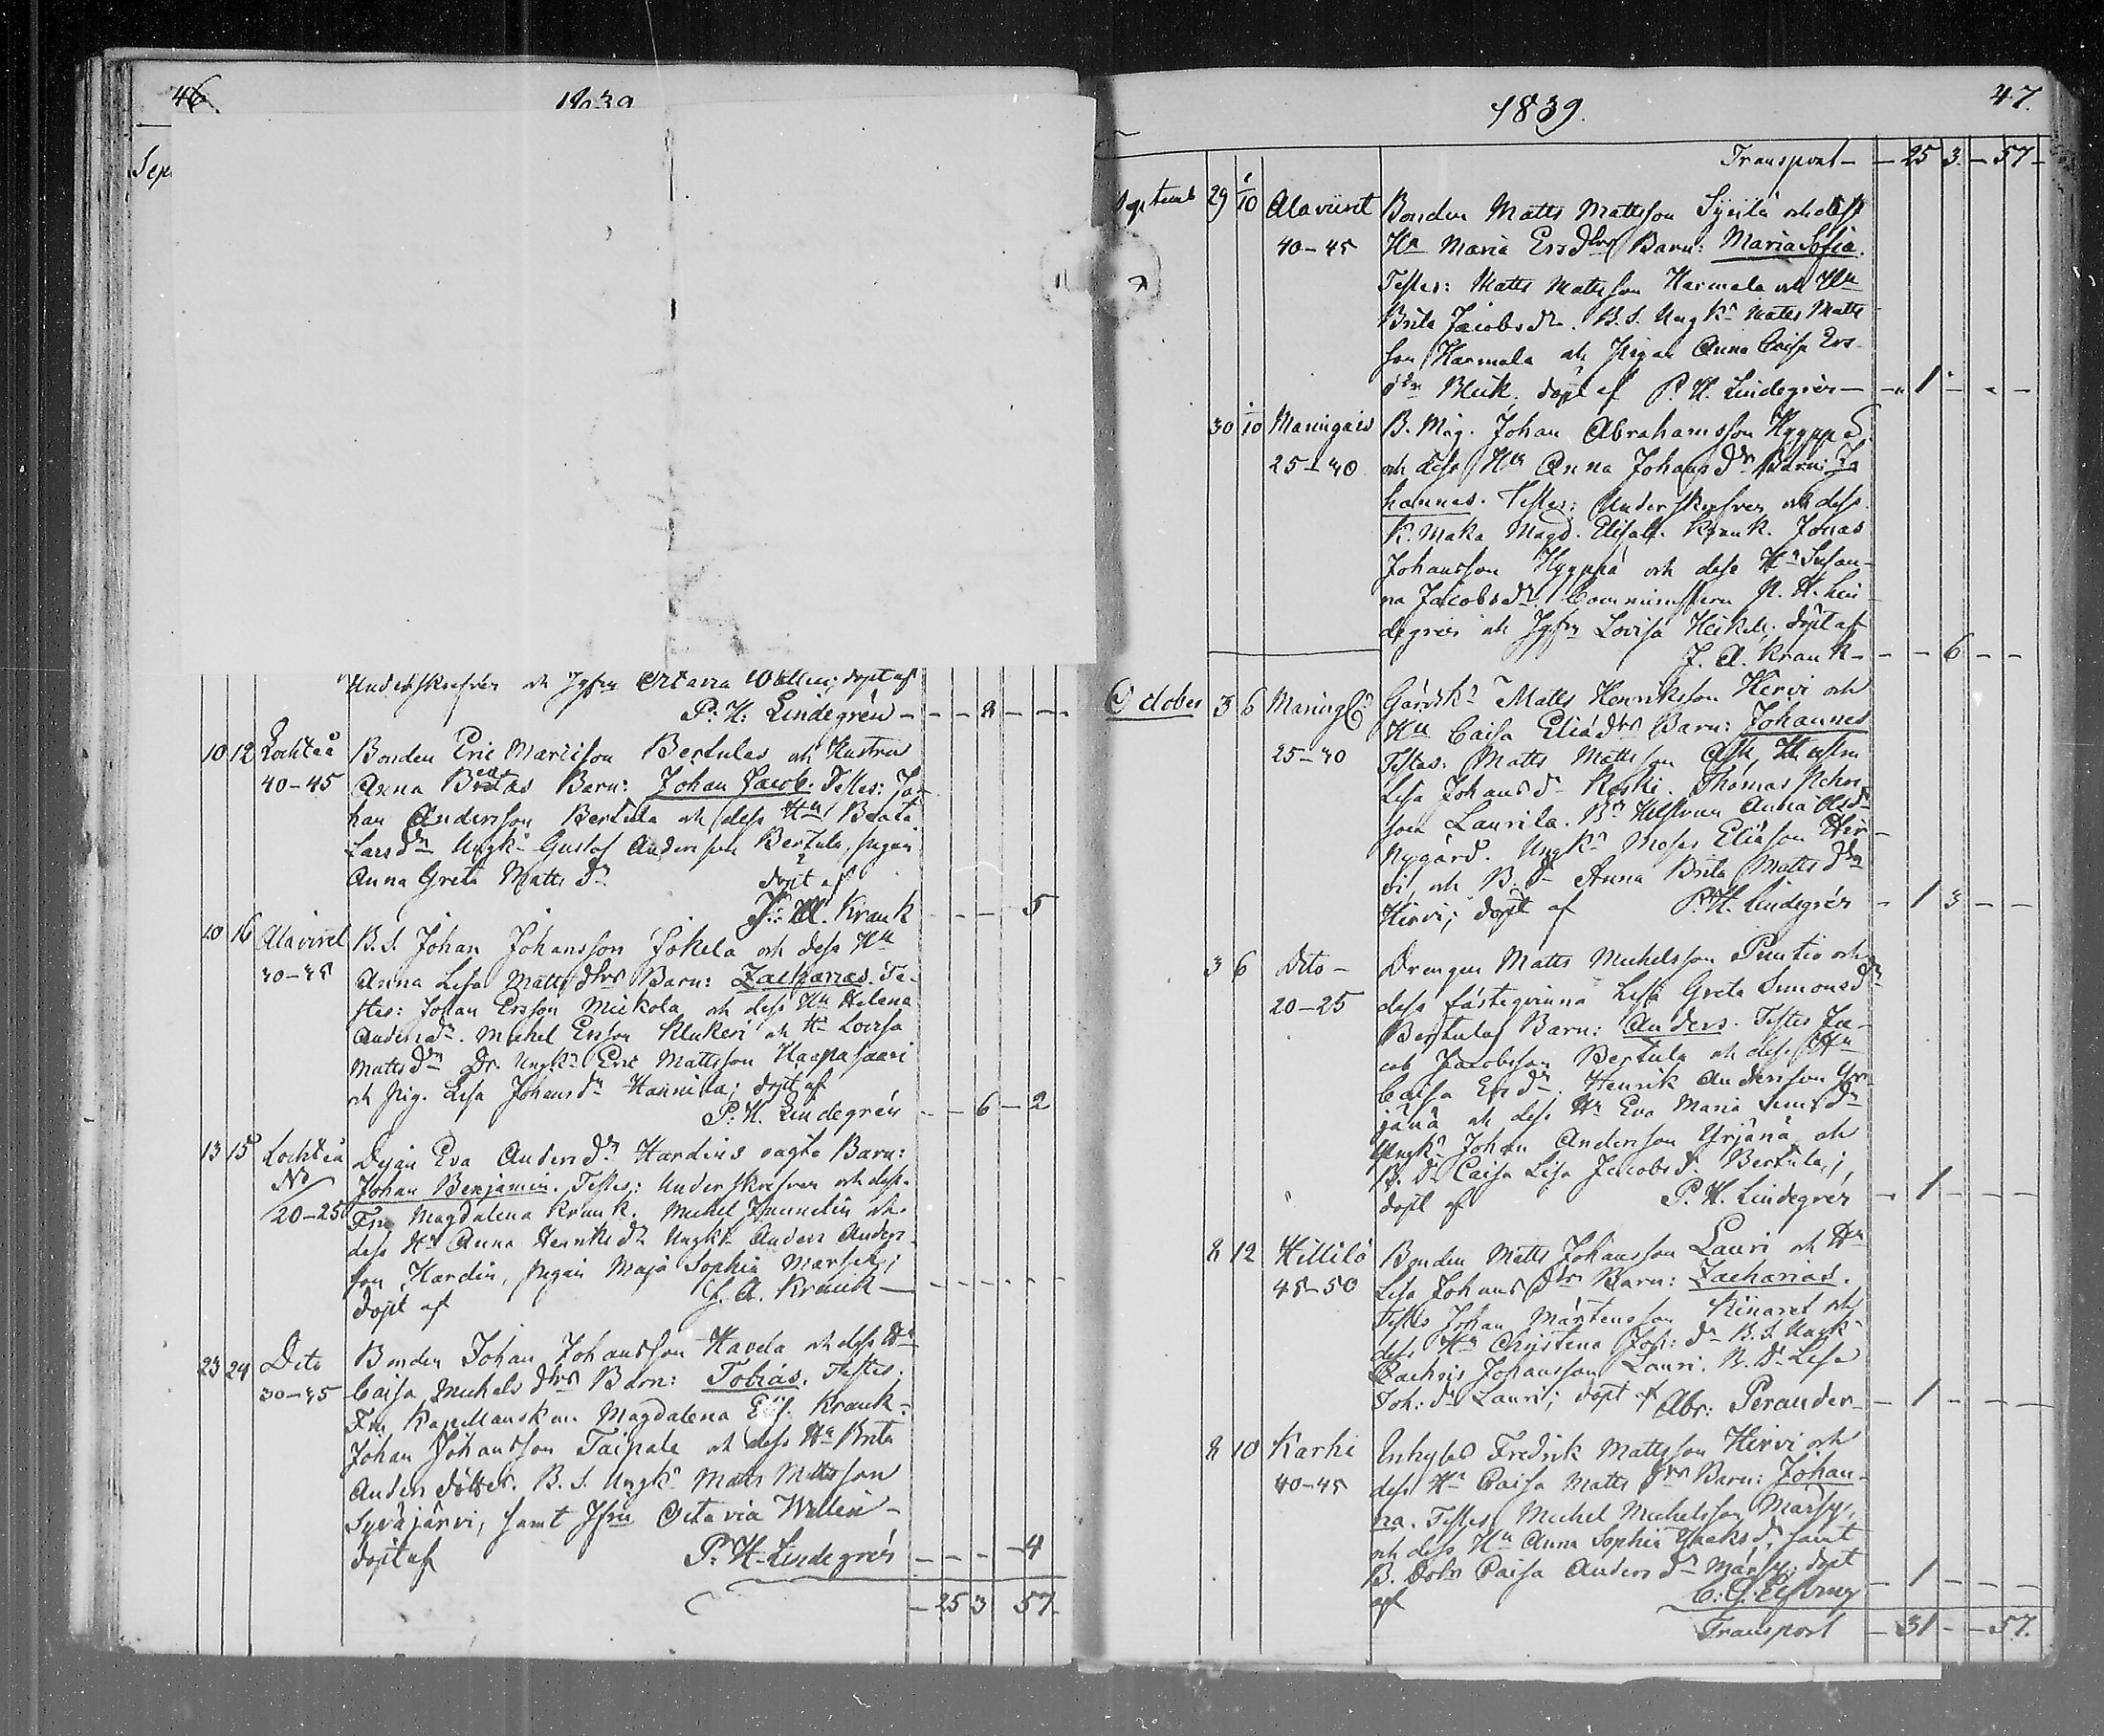 46
1839
Sep
Underskrefven och Jgfrn Octavia Wellin; döpt af
P. H. Lindegrén - - - 2 - - -
10 12 Lochteå Bonden Eric Markisson Bertulas och Hustrus
40-45 Anna Beatas Barn: Johan Jacob. Testes: Jo-
han Andersson Bertula och dess Hu Beata
Larsdr Ungk. Gustaf Andersson Bertula, pigan
Anna Greta Matts dr döpt af
J. A. Krank - - - 5
10 16 Alaviret B. S. Johan Johansson Jokela och dess Hu
30-35 Anna Lisa Matts dtrs Barn: Zacharias. Te-
stes: Johan Ersson Mickola och dess Hu Helena
Andersdr. Michel Ersson Klukeri och Hu Lovisa
Mattsdr Dr. Ungkn Eric Mattsson Haapasaari
och Pig. Lisa Johansdr Hannila; döpt af
P. H. Lindegrén - - 6 - 2
13 15 Lochteå Pigan Eva Andersdr Hardins oägta Barn:
No Johan Benjamin. Testes: Underskrefven och dess
20-25 Fru Magdalena Krank. Michel Junnelin och
dess Hu Anna Henriksdr Ungkn Anders Anders-
son Hardin, pigan Maja Sophia Marsen;
döpt af J. A. Krank - - - - -
23 24 Dito Bonden Johan Johansson Havela och dess Hu
30-35 Caisa Michels dtrs Barn: Tobias. Testes:
Fru Kapellanskan Magdalena Elis. Krank.
Johan Johansson Taipale och dess Hu Brita
Anders dotter. B. S. Ungkn Matts Mattsson
Syväjärvi, samt Jfru Octavia Wellin -
döpt af P. H. Lindegrén - - - - 4
- 25 3 57.
1839. 47.
Transport - - 25 3. - 57 -
Septemb 29 1/10 Alaviret Bonden Matts Mattsson Syrilä och dess
40-45 Hu Maria Ersdtrs Barn: Maria Sofia.
Testes: Matts Mattsson Harmala och Hu
Brita Jacobsdr. B. S. Ungkn Matts Matts
son Harmala och Pigan Anna Caisa Ers-
dtr Bleik. döpt af P. H. Lindegrén - - 1 - - -
30 1/10 Maningais B. Måg. Johan Abrahamsson Hyyppäs
25-30 och dess Hu Anna Johans dr Barn: Jo
hannes. Testes: Underskrefven och dess
K. Maka Magd. Elisab. Krank. Jonas
Johansson Hyyppä och dess Hu Susan-
na Jacobsdr. Comministern P. H. Lin
degrén och Jgfrn Lovisa Heikel. döpt af
J. A. Krank - - - 6 - -
October 3 6 Maning Gårdskn Matts Henriksson Hervi och
25-30 Hu Caisa Elias dtrs Barn: Johannes
Testes: Matts Mattsson Ask, Hustru
Lisa Johansdr Koski. Thomas Johns
son Laurila. Hustrun Anna Olsdr
Nygård. Ungkn Moses Eliasson Her-
vi, och B. dr Anna Brita Mattsdr
Hirvi; döpt af P. H. Lindegrén - 1 3 - -
3 6 Dito - Drengen Matts Michelsson Puntio och
20-25 dess fästeqvinna Lisa Greta Simonsdr
Bertulas Barn: Anders. Testes Ja-
cob Jacobsson Bertula och dess Hu
Caisa Ersdr. Henrik Andersson Yr-
jänä och dess Hu Eva Maria Simsdr
Ungkn Johan Andersson Yrjänä och
B. Dr Caisa Lisa Jacobsdr Bertula;
döpt af P. H. Lindegrén - 1 - - -
8 12 Hillilä Bonden Matts Johansson Lauri och Hu
45-50 Lisa Johans dtrs Barn: Zacharias.
Testes Johan Mårtensson Kiinaret och
dess Hu Christena Joh: dr B. S. Ungk
Zachris Johansson Lauri. B. Dr Lisa
Joh: dr Lauri; döpt af Abr: Perander - - 1 - - -
8 10 Karhi Inhyses Fredrik Mattsson Hirvi och
40-45 dess Hu Caisa Matts dtrs Barn: Johan-
na. Testes Michel Michelsson Märsy,
och dess Hu Anna Sophia Isaksdr, samt
B. Dotr Caisa Anders dr Märsy; döpt
af C. G. Elfving - 1 - - -
Transport - 31 - - 57.